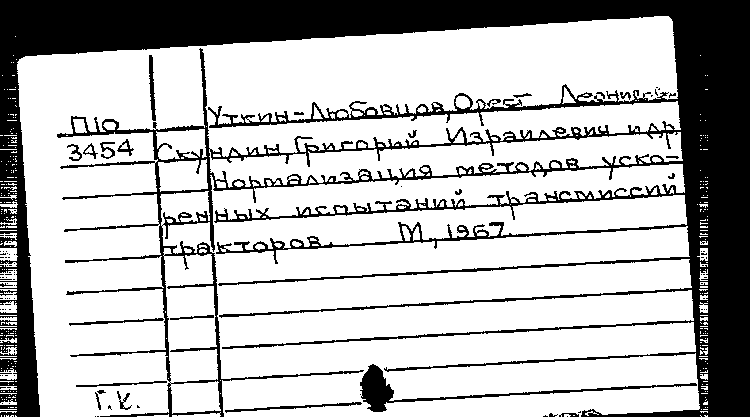 П10 Уткин-Любовцов, Орест
3454 Скундин, Григорий Израилевич и др.
Нормализация методов уско-
ренных испытаний трансмиссий
тракторов. М., 1967.
Г.К.